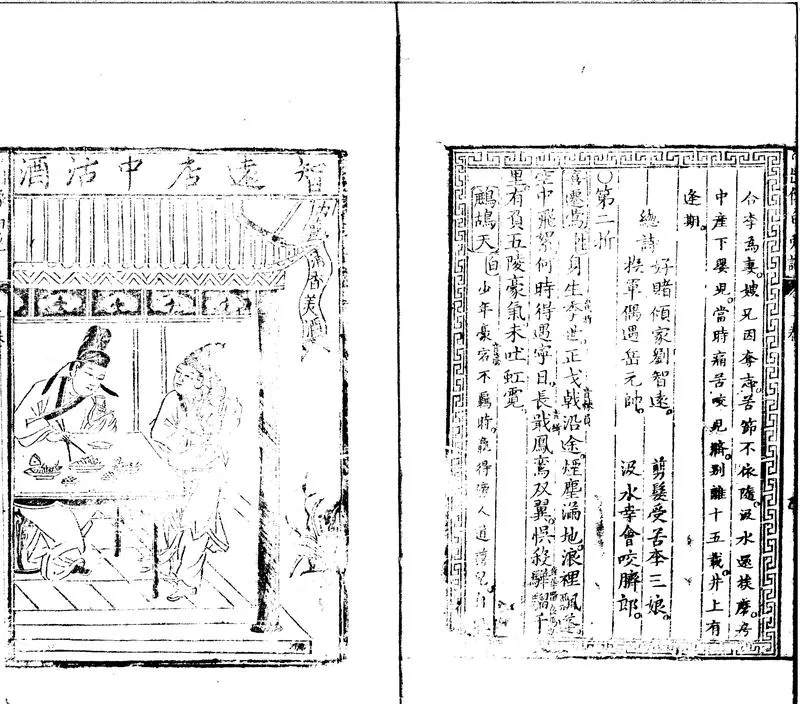 李為妻。嫂兄因奪志。苦節不依隨。汲水還挨磨。房
中産下嬰兒。當時痛苦咬兒臍。別離十五載。井上有
逢期。
總詩 好賭傾家劉智遠。 剪髮受苦李三娘。
投軍偶遇岳元帥。 汲水幸會咬臍郎。
〇第二折
喜遷鶯 身生季世。正戈戟沿途。煙塵滿地。浪裡飄
空中飛絮。何時得遇寧日。長戢鳳鸞双翼。悞殺驊騮千
里。有負五陵豪氣。未吐虹霓。
鷓鴣天 白 少年豪宕不羈時。羸得傍人道蕩兒
智遠店中沽酒
香美酒